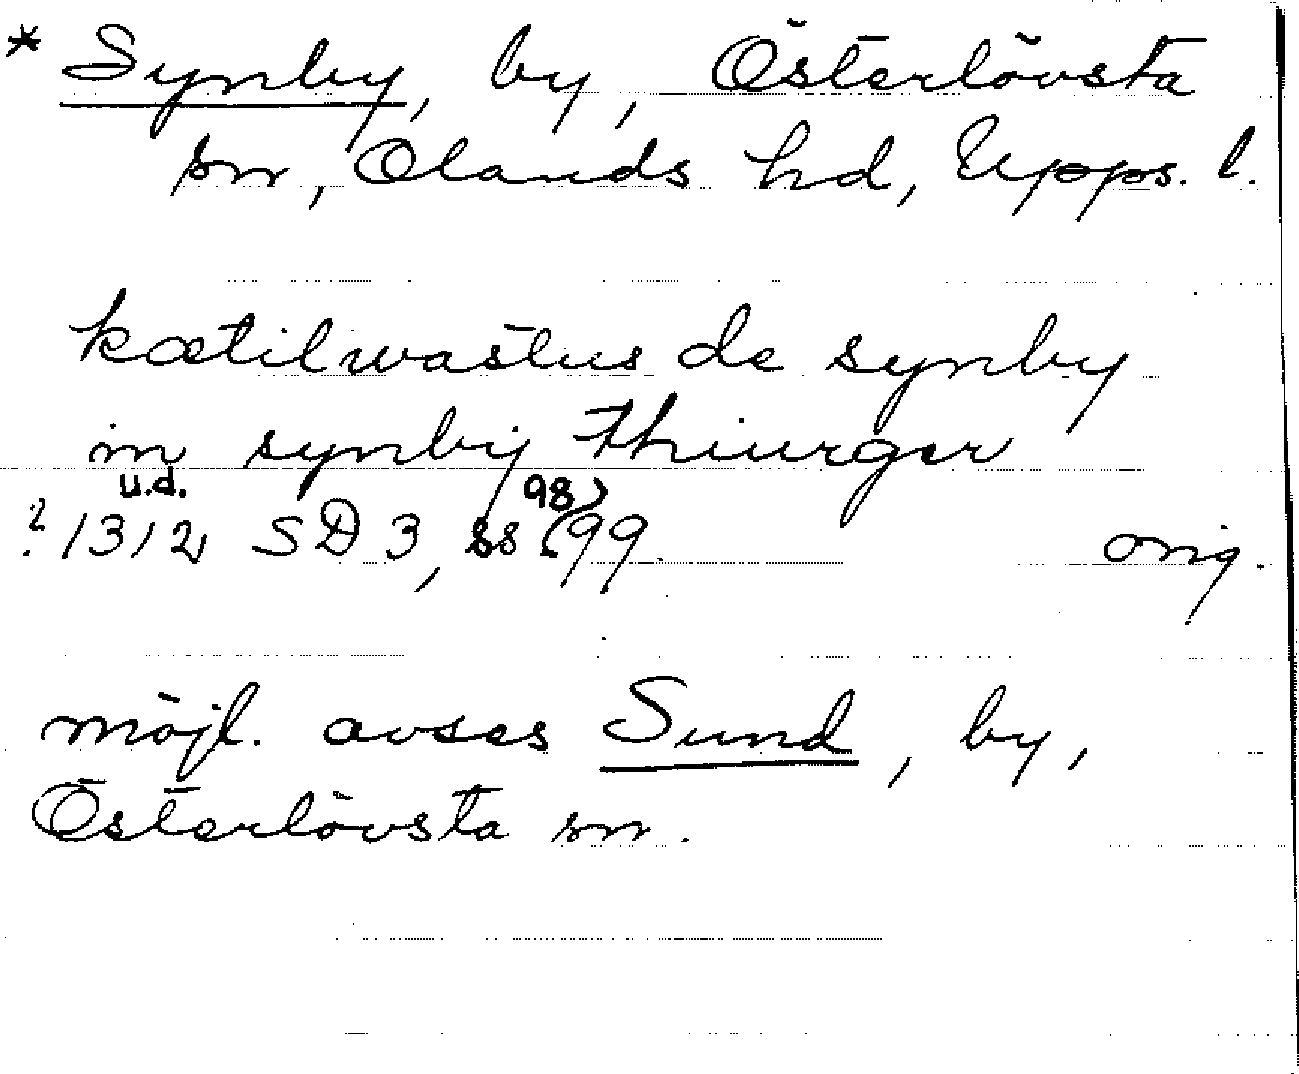 * Synby, by, Österlövsta
sn, Olands hd, Upps. l.
kætilwastus de synby
in synbÿ thiurger
u.d. 98)
? 1312 SD 3, ss (99 orig.
möjl. avses Sund, by,
Österlövsta sn.